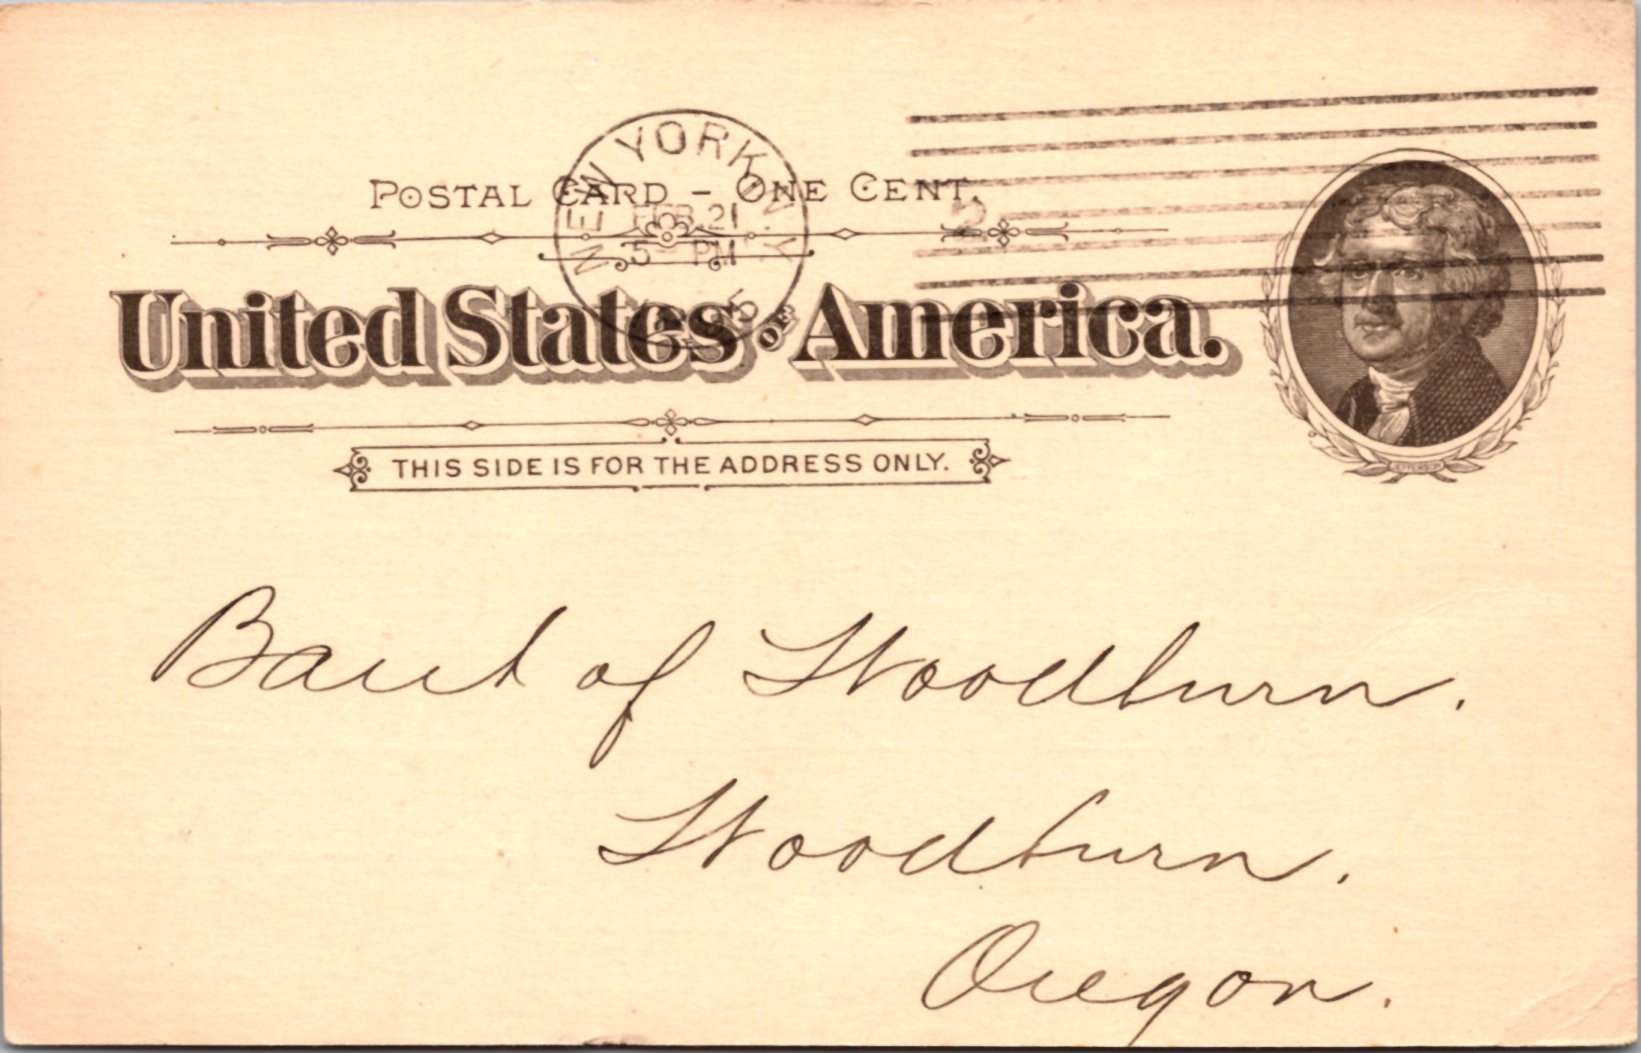 POSTAL CARD – ONE CENT.
NEW YORK, N.Y.
FEB. 21
5 PM
2
United States OF America.
JEFFERSON
THIS SIDE IS FOR THE ADDRESS ONLY.
Bank of Woodburn.
Woodburn.
Oregon.